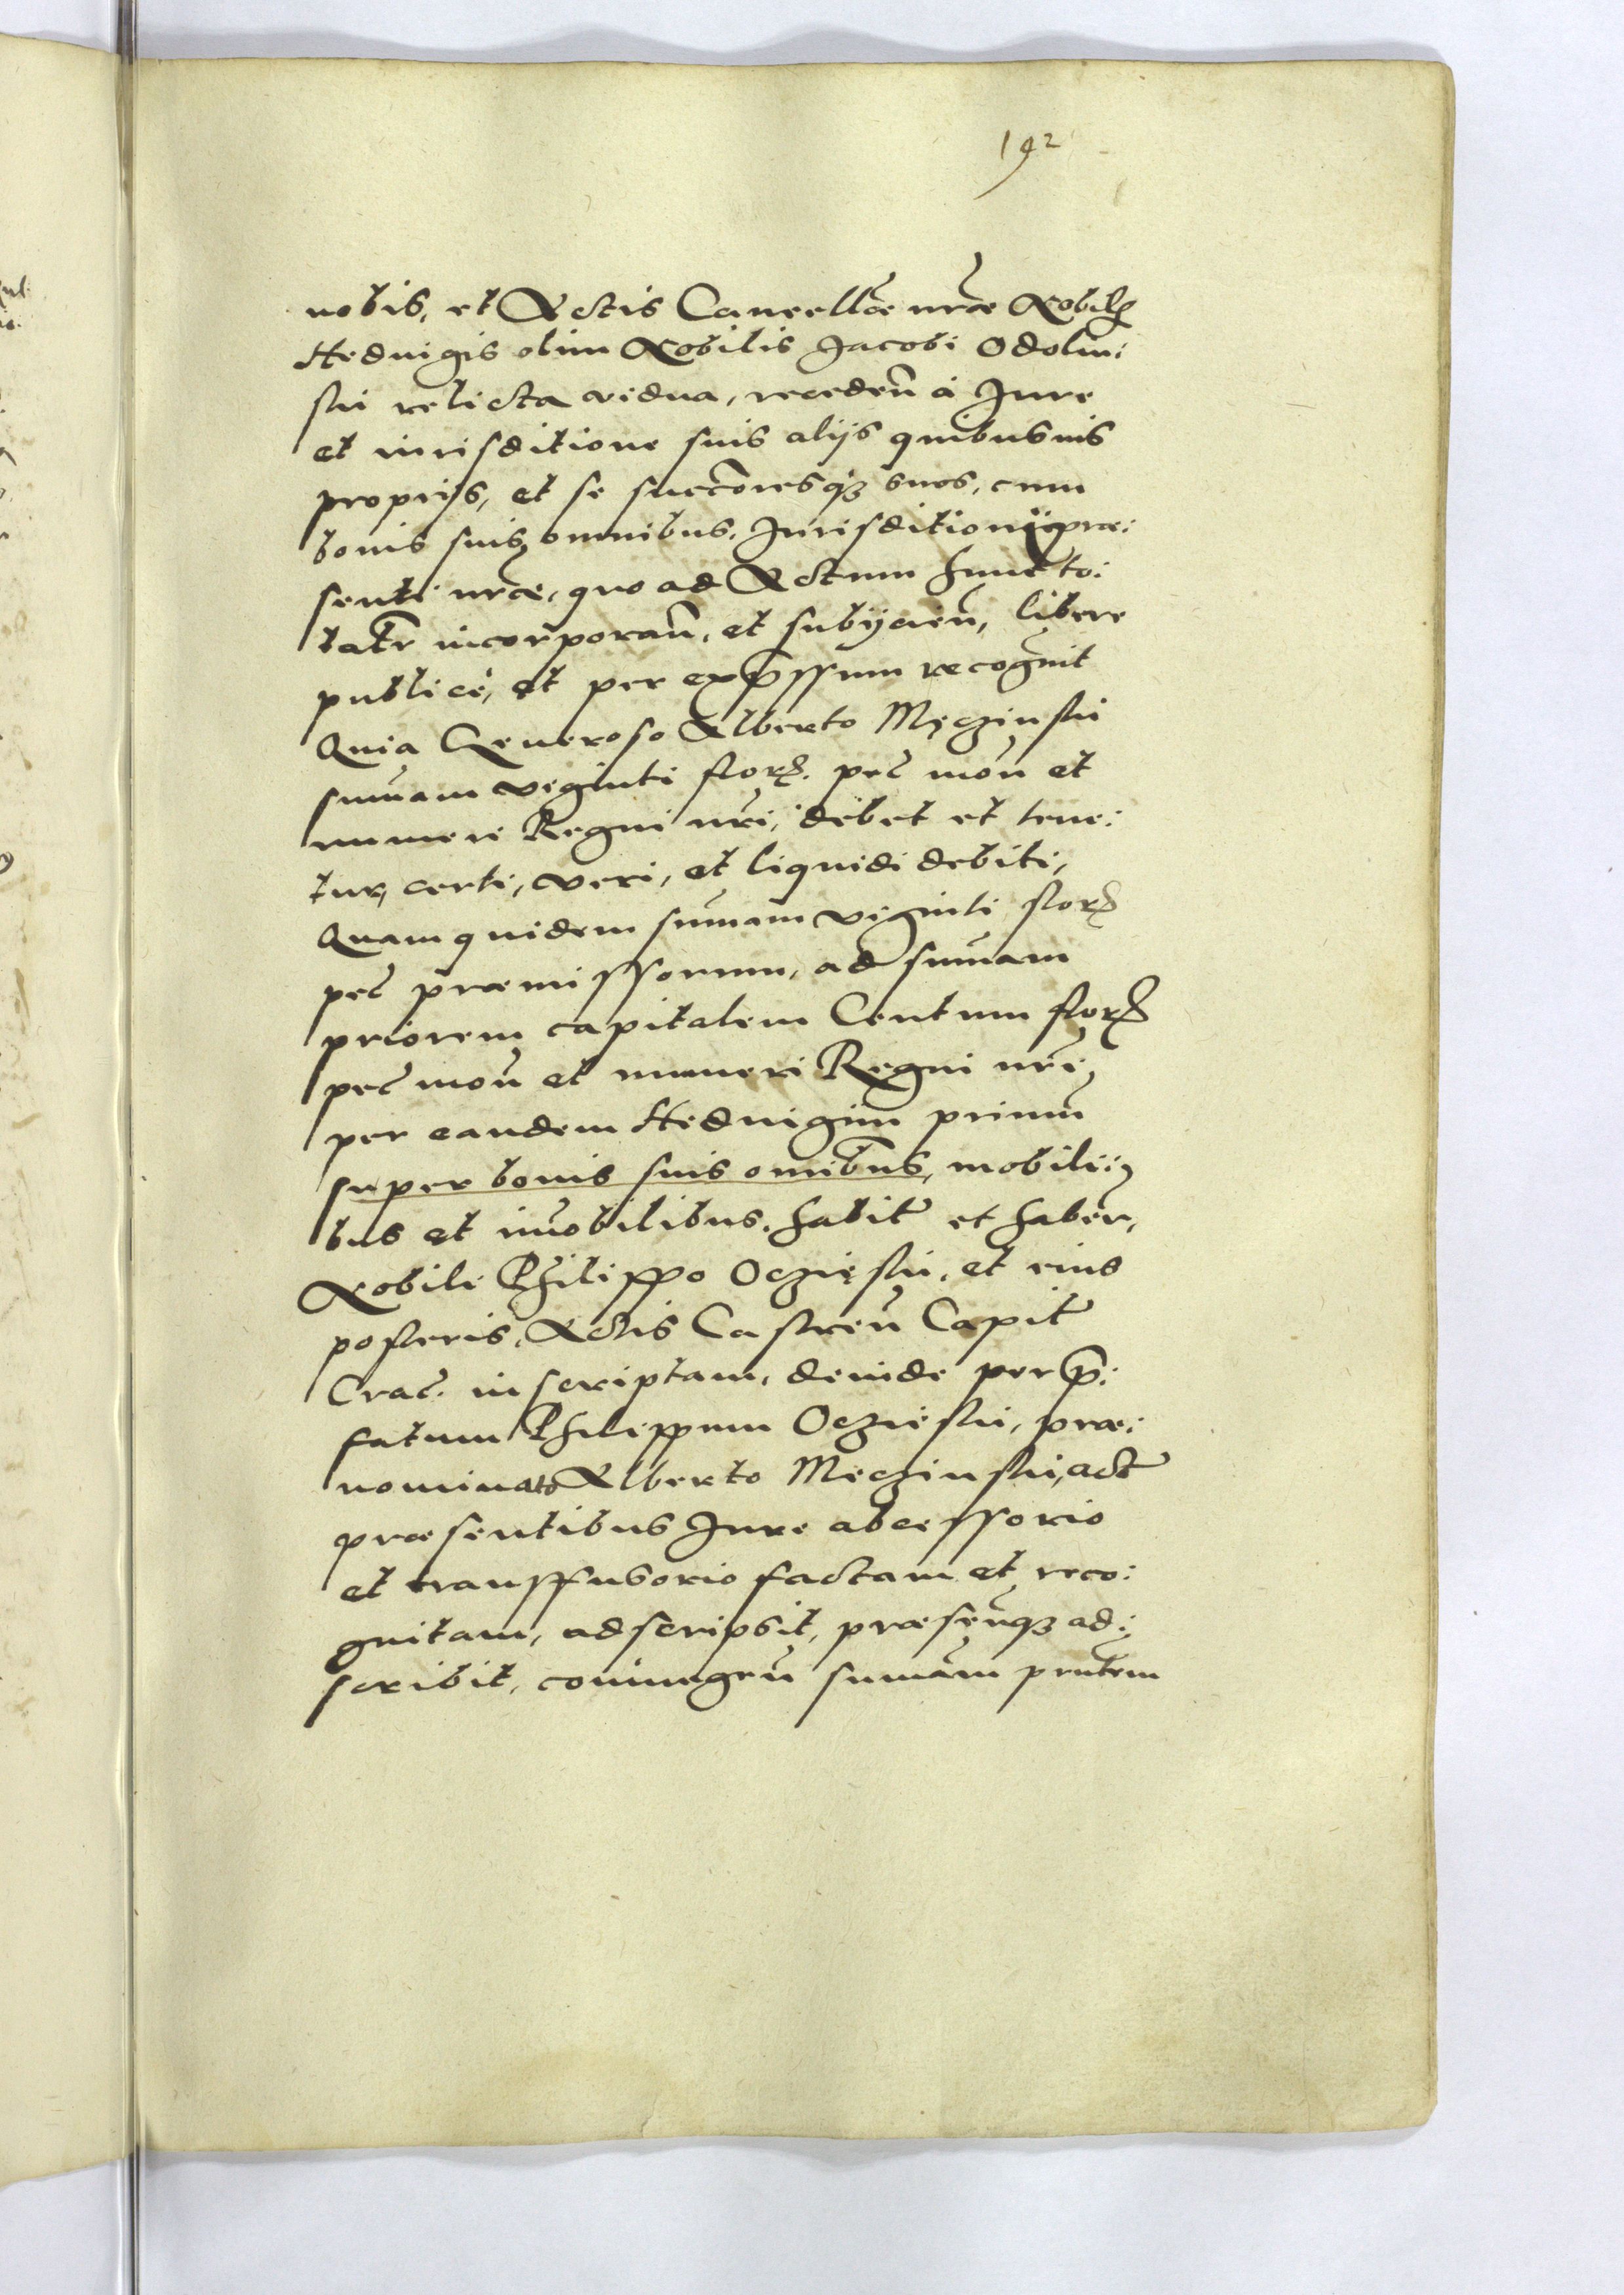 192
nobis, et Actis Cancellæ nræ Nobilis
Hedvigis olim Nobilis Jacobi Odolin:
ski relicta vidua, receden̄ à Jure
et iurisditione suis alijs quibusuis
proprijs, et se succōresq₃ suos, cum
bonis suis omnibus, Jurisditioni præ:
senti nræ, quo ad Actum hunc to:
tatr incorporan̄, et subijcien̄, libere
publicè, et per expssum recognuit
Quia Generoso Alberto Męczinski
sum̄am viginti flor. pec̄ mon̄ et
numeri Regni nri, debet et tene:
tur, certi, veri, et liquidi debiti,
Quam quidem sum̄am viginti flor
pec̄ præmissorum, ad sum̄am
priorem capitalem Centum flor
pec̄ mon̄ et numeri Regni nri,
per eandem Hedvigim primū
super bonis suis omībus, mobili:
bus et im̄obilibus, habit et haben̄,
Nobili Philippo Oczięski, et eius
posteris, Actis Castren̄ Capit
Crac̄. inscriptam, deinde per p̄:
fatum Philippum Oczięski, præ:
nominato Alberto Męczinski, act
præsentibus Jure abcessorio
et transfusorio factam et reco:
gnitam, adscripsit, præsen̄q₃ ad:
scribit, coniungen̄ sum̄am pntem